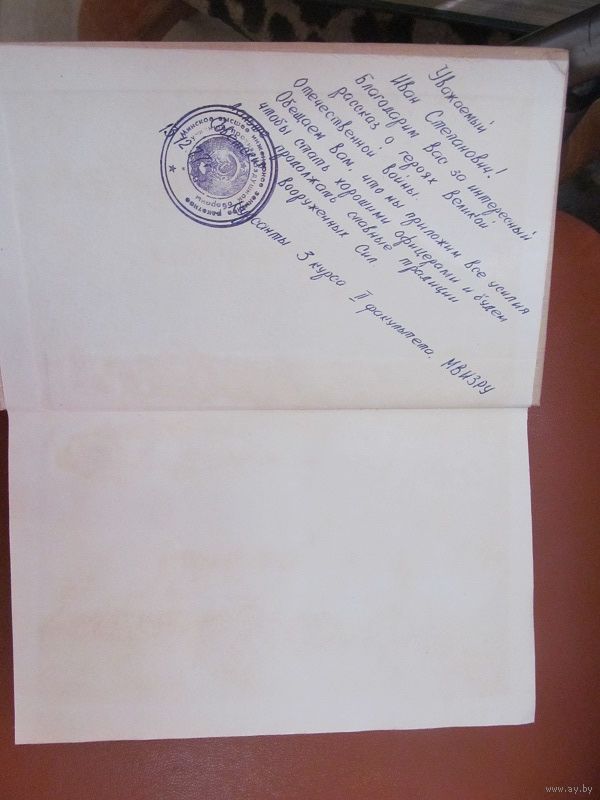 Уважаемый
Иван Степанович!
Благодарим Вас за интересный
рассказ о героях Великой
Отечественной войны.
Обещаем Вам, что мы приложим все усилия
чтобы стать хорошими офицерами и будем
продолжать славные традиции
вооруженных Сил
Курсанты 3 курса II факультета. МВИЗРУ
Минское высшее инженерное зенитное ракетное
обороны
www.ay.by